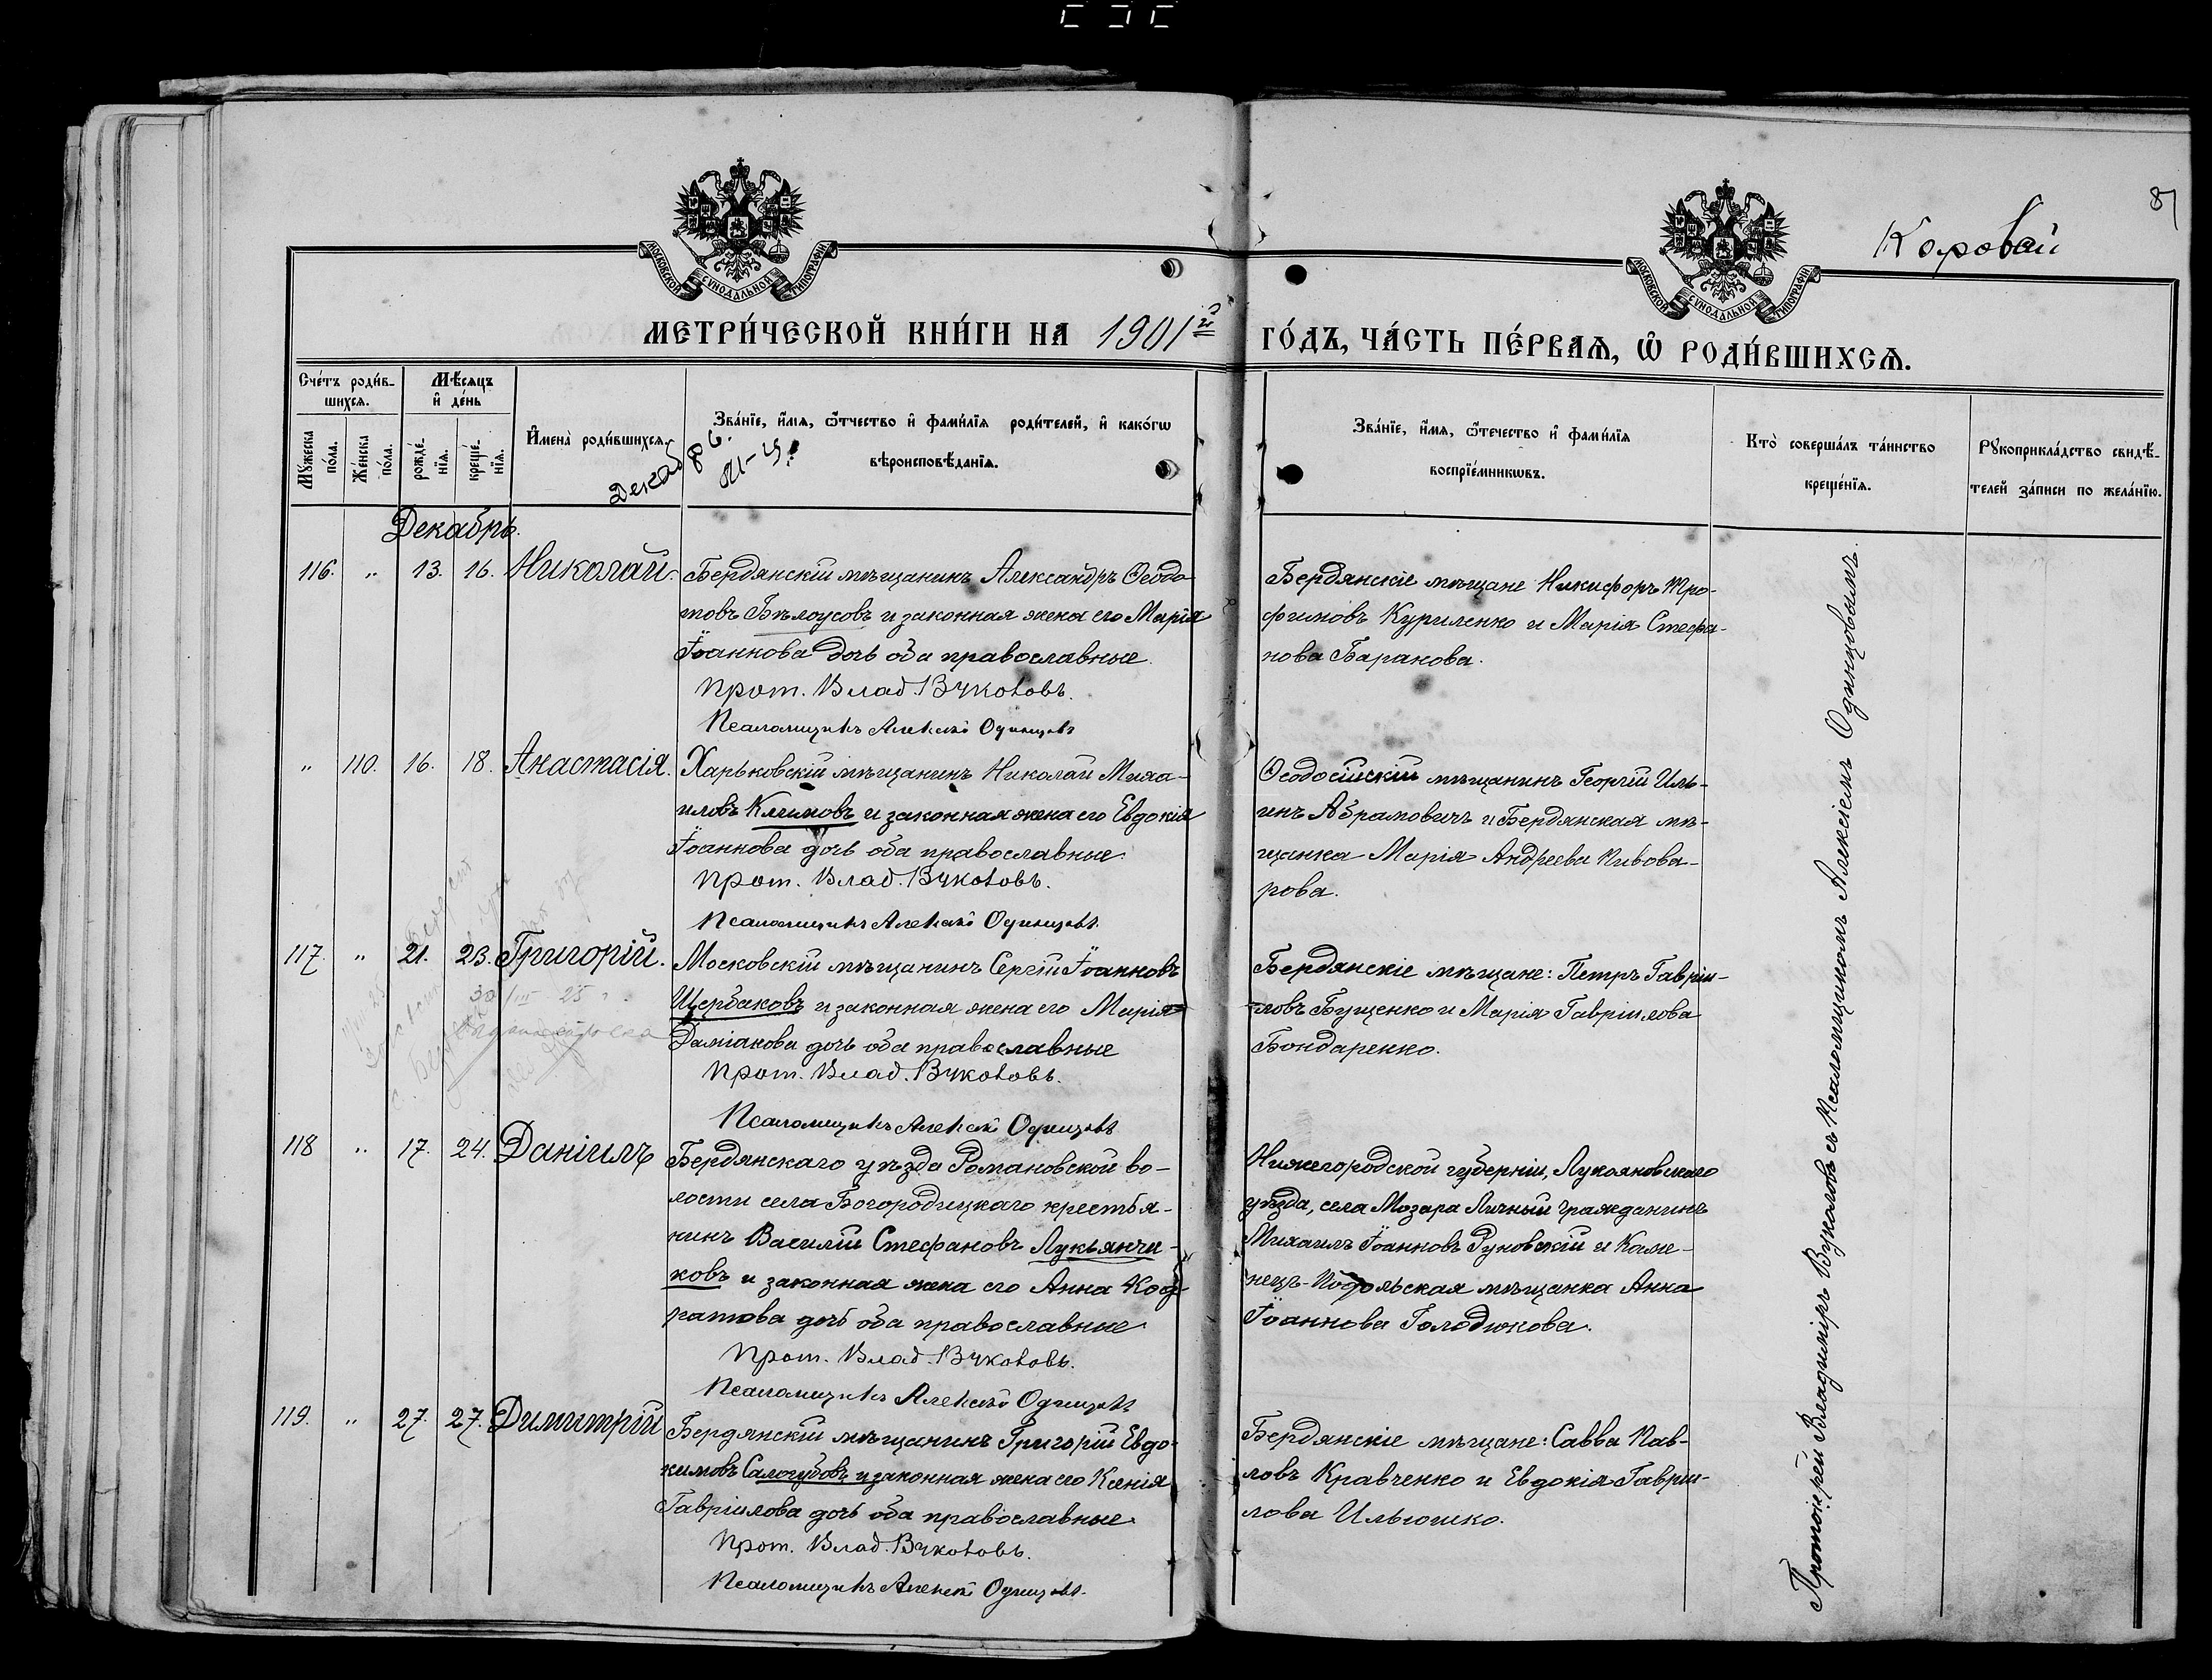 Коровай
81
МОСКОВСКОЙ СѴНОДАЛЬНОЙ ТИПОГРАФІИ
МОСКОВСКОЙ СѴНОДАЛЬНОЙ ТИПОГРАФІИ
МЕТРИ́ЧЕСКОЙ КНИ́ГИ НА 1901й ГО́ДЪ, ЧА́СТЬ ПЕ́РВАѦ, Ѡ РОДИ́ВШИХСѦ.
Сче́тъ роди́в-
шихсѧ.
Мѣ́сѧцъ
и҆ де́нь
Мꙋ́жеска
по́ла.
Же́нска
по́ла.
рожде́-
нїѧ.
креще́-
нїѧ.
И҆мена̀ роди́вшихсѧ.
Зва́нїе, и҆́мѧ, ѻ҆́тчество и҆ фами́лїѧ роди́телей, и҆ како́гѡ
вѣроисповѣ́данїѧ.
Зва́нїе, и҆́мѧ, ѻ҆те́чество и҆ фами́лїѧ
воспрїе́мникѡвъ.
Кто̀ соверша́лъ та́инство
креще́нїѧ.
Рꙋкоприкла́дство свидѣ́-
телей за́писи по жела́нїю.
Декабрь.
116. „ 13. 16. Николай.
Бердянскій мѣщанинъ Александръ Ѳеодо-
товъ Бѣлоусовъ и законная жена его Марія
Іоаннова дочь оба православные.
Прот. Влад. Вуколовъ.
Псаломщикъ Алексѣй Одинцовъ
Бердянскіе мѣщане Никифоръ Тро-
фимовъ Куриленко и Марія Стефа-
нова Баранова.
„ 110. 16. 18. Анастасія.
Харьковскій мѣщанинъ Николай Миха-
иловъ Климовъ и законная жена его Евдокія
Іоаннова дочь оба православные.
Прот. Влад. Вуколовъ.
Псаломщикъ Алексѣй Одинцовъ.
Ѳеодосійскій мѣщанинъ Георгій Иль-
инъ Абрамовичъ и Бердянская мѣ-
щанка Марія Андреева Пивова-
рова.
117. „ 21. 23. Григорій.
Московскій мѣщанинъ Сергій Іоанновъ
Щербаковъ и законная жена его Марія
Даміанова дочь оба православные
Прот. Влад. Вуколовъ.
Псаломщикъ Алексѣй Одинцовъ
Бердянскіе мѣщане: Петръ Гаврі-
ловъ Бущенко и Марія Гавріилова
Бондаренко.
118 „ 17. 24. Даніилъ
Бердянскаго уѣзда Романовской во-
лости села Богородицкаго крестья-
нинъ Василій Стефановъ Лукьянчи-
ковъ и законная жена его Анна Код-
ратова дочь оба православные
Прот. Влад. Вуколовъ.
Псаломщикъ Алексѣй Одинцовъ
Нижегородской губерніи, Лукояновскаго
уѣзда, села Мозара Личный гражданинъ
Михаилъ Іоанновъ Руновскій и Каме-
нецъ-Подольская мѣщанка Анна
Іоаннова Голодюкова.
119. „ 27. 27. Димитрій
Бердянскій мѣщанинъ Григорій Евдо-
кимовъ Салогубовъ и законная жена его Ксенія
Гавріилова дочь оба православные.
Прот. Влад. Вуколовъ.
Псаломщикъ Алексѣй Одинцовъ.
Бердянскіе мѣщане: Савва Пав-
ловъ Кравченко и Евдокія Гаврі-
лова Ильюшко.
Протоіерей Владиміръ Вуколовъ съ Псаломщикомъ Алексіемъ Одинцовымъ.